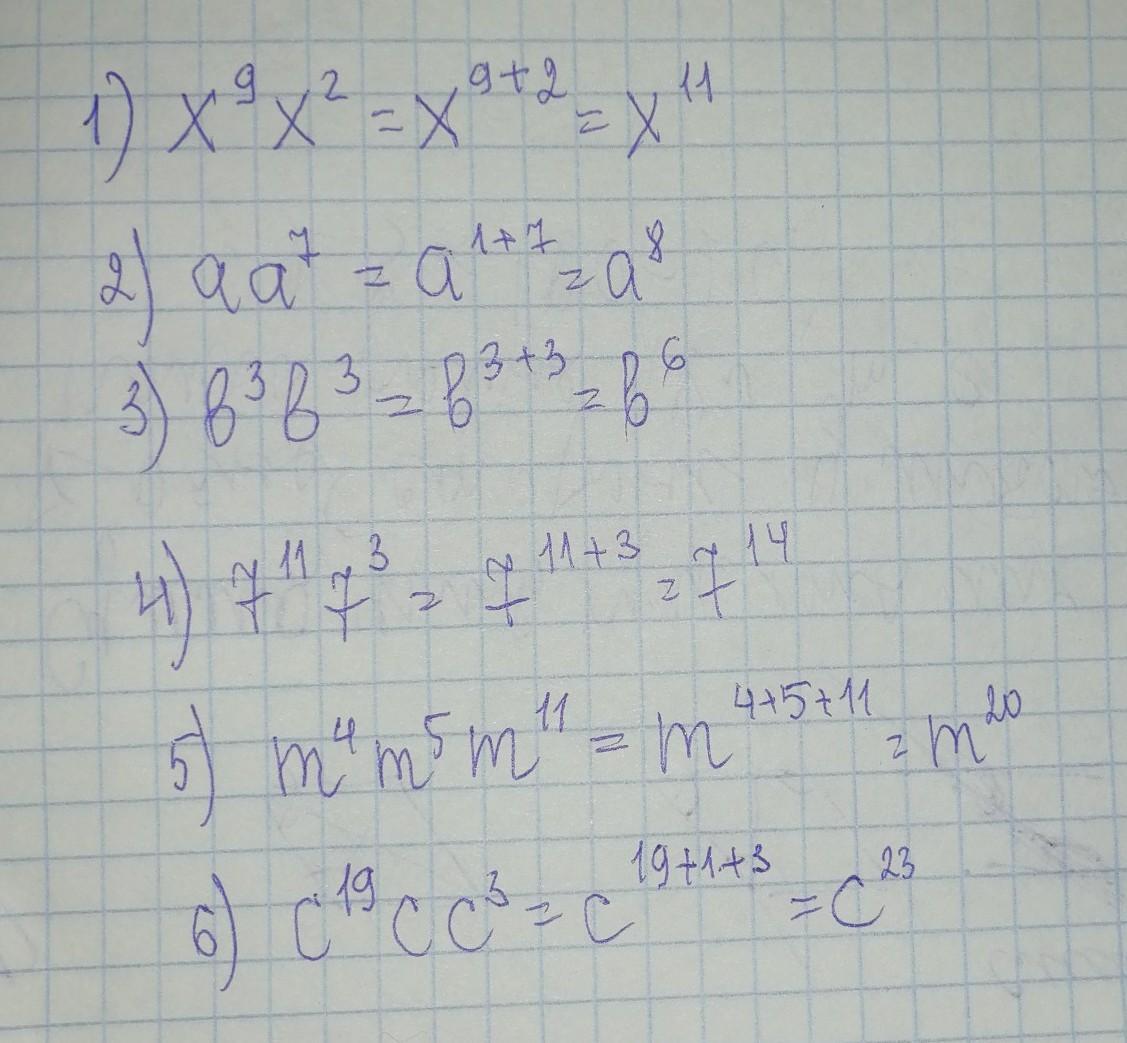 1) x⁹x² = x⁹⁺² = x¹¹
2) aa⁷ = a¹⁺⁷ = a⁸
3) b³b³ = b³⁺³ = b⁶
4) 7¹¹7³ = 7¹¹⁺³ = 7¹⁴
5) m⁴m⁵m¹¹ = m⁴⁺⁵⁺¹¹ = m²⁰
6) c¹⁹cc³ = c¹⁹⁺¹⁺³ = c²³